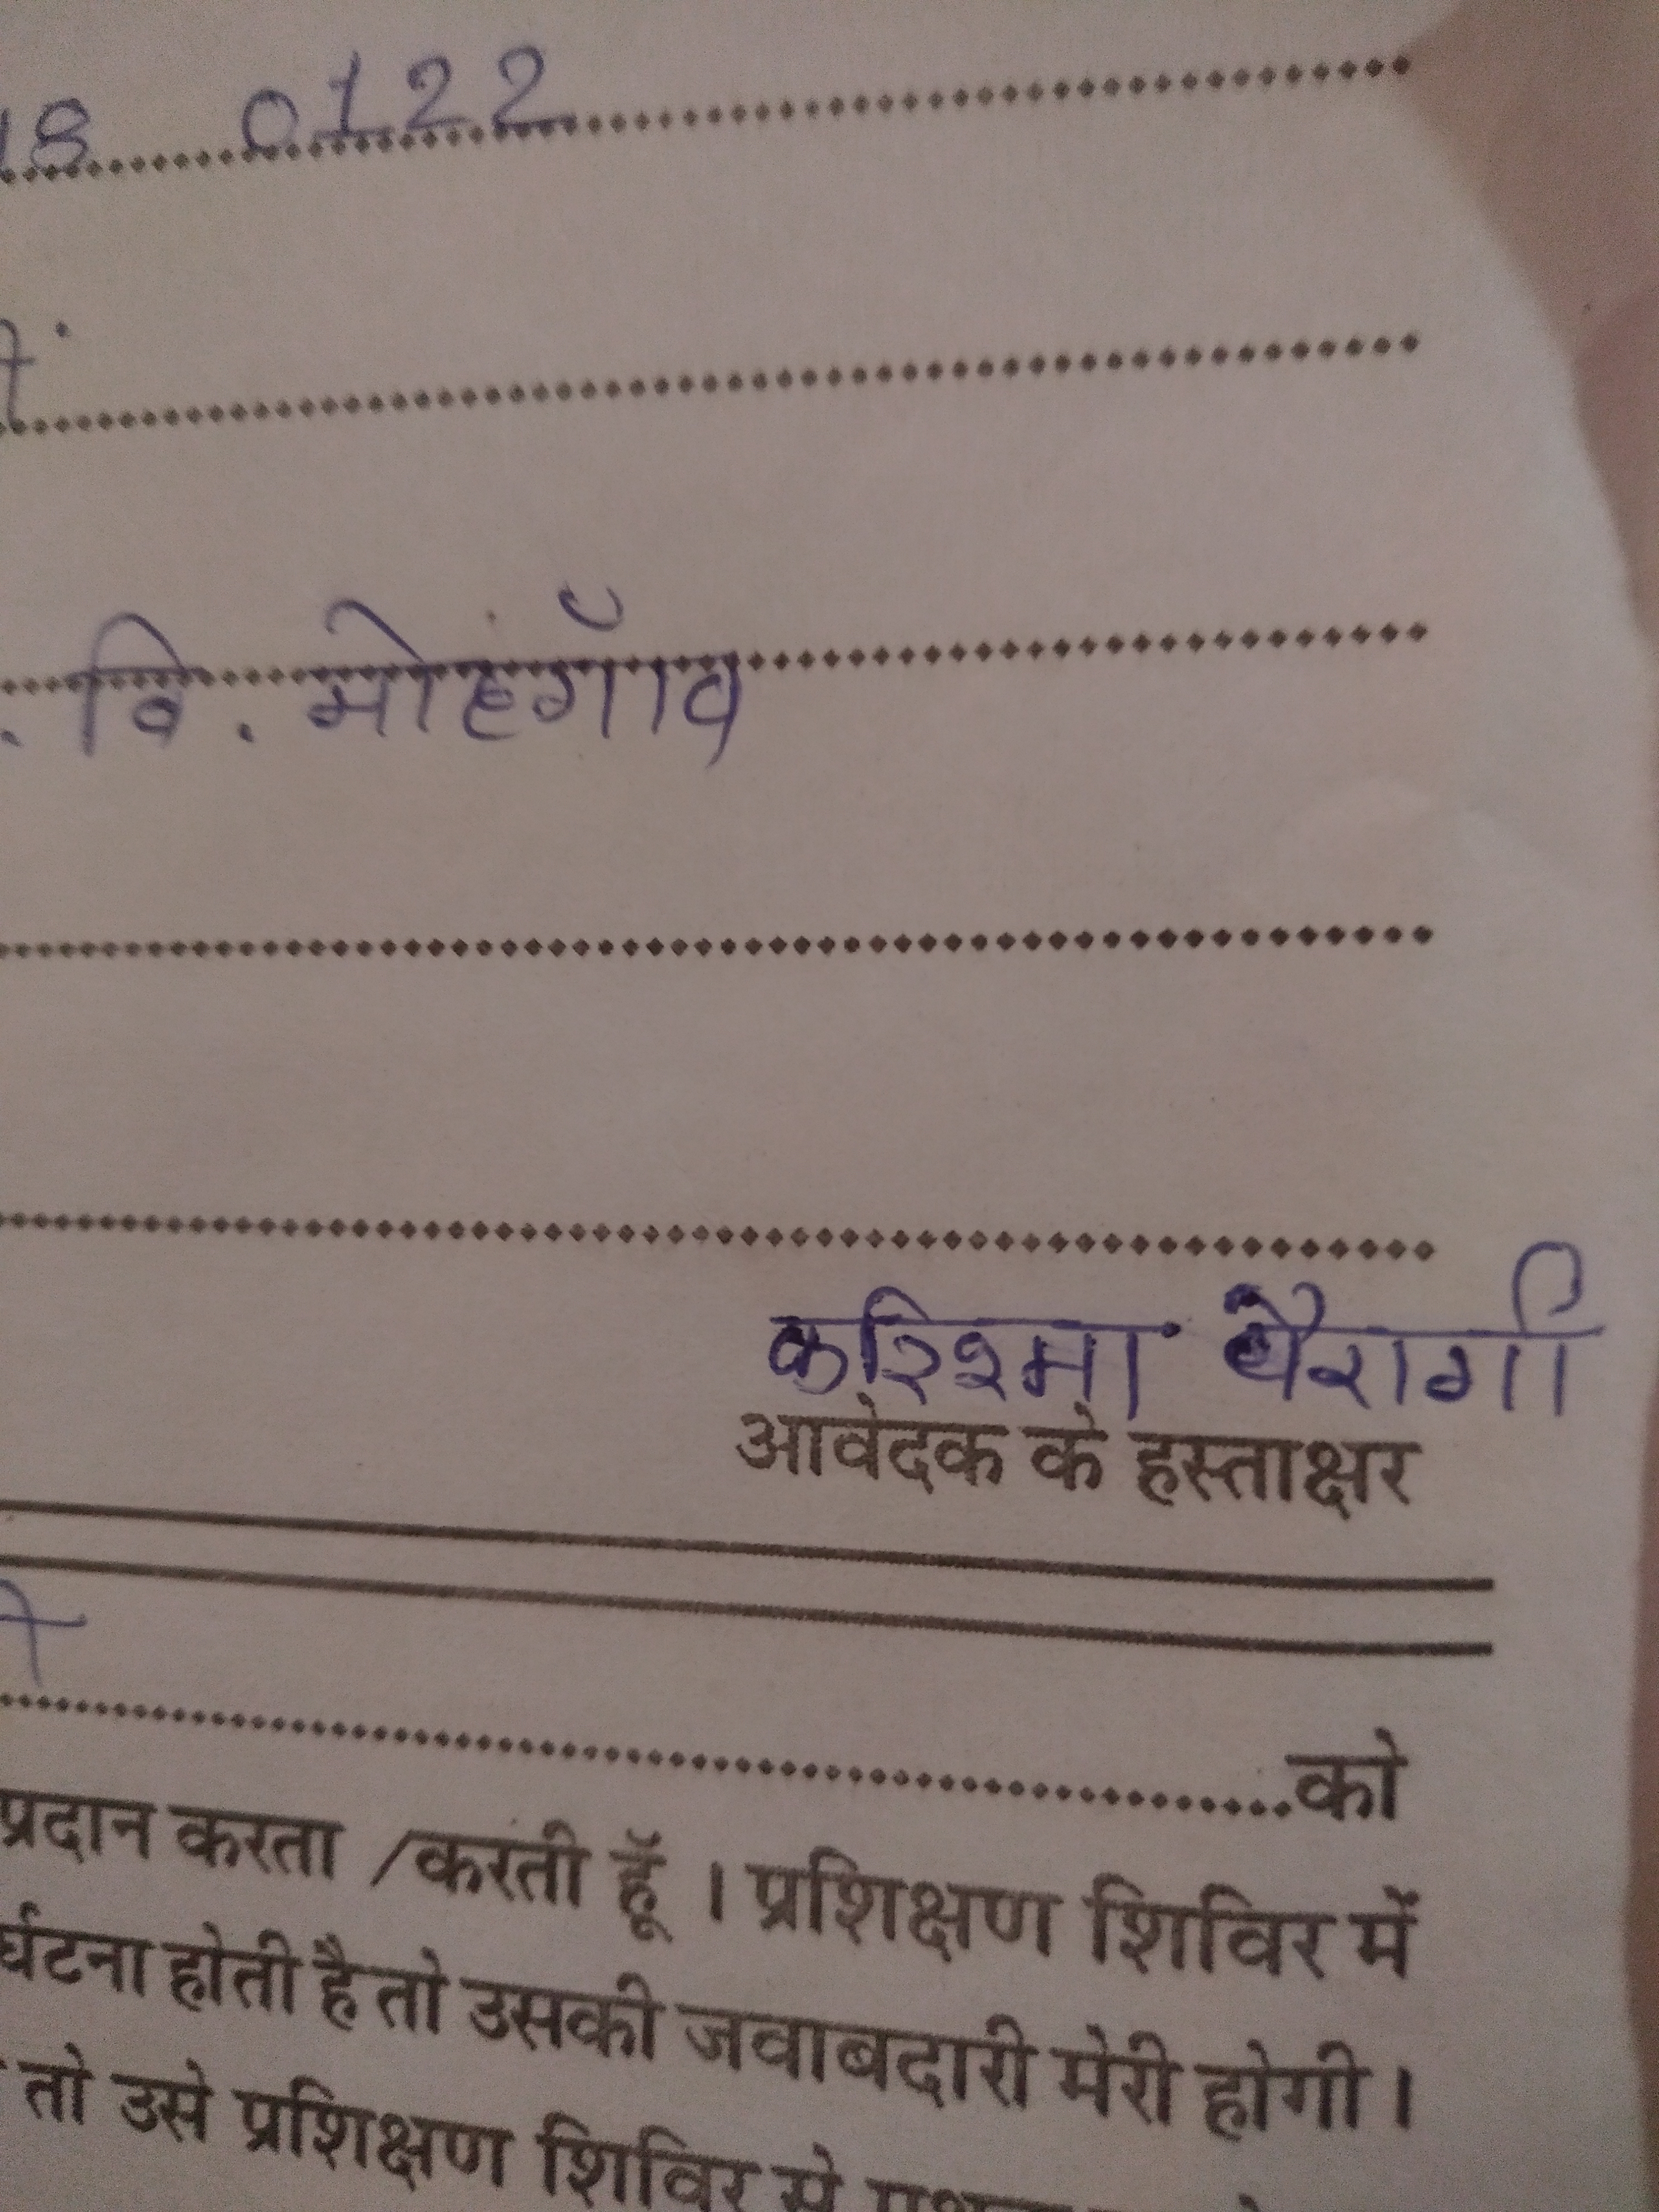 18 0122
. वि . मोहगाँव
करिश्मा बैरागी
आवेदक के हस्ताक्षर
को
प्रदान करता /करती हूँ । प्रशिक्षण शिविर में
र्घटना होती है तो उसकी जवाबदारी मेरी होगी ।
तो उसे प्रशिक्षण शिविर से